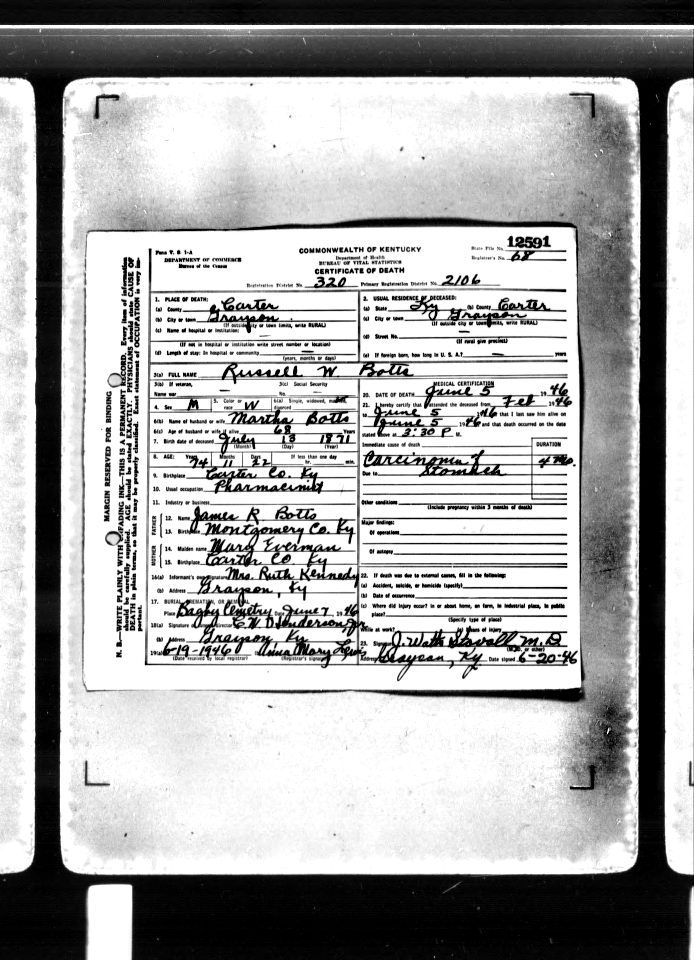 Form V. S 1-A
DEPARTMENT OF COMMERCE
Bureau of the Census
COMMONWEALTH OF KENTUCKY
Department of Health
BUREAU OF VITAL STATISTICS
CERTIFICATE OF DEATH
State File No. 12591
Registrar's No. 68
Registration District No. 320 Primary Registration District No. 2106
MARGIN RESERVED FOR BINDING
N. B.—WRITE PLAINLY WITH UNFADING INK—THIS IS A PERMANENT RECORD. Every item of information
should be carefully supplied. AGE should be stated EXACTLY. PHYSICIANS should state CAUSE OF
DEATH in plain terms, so that it may be properly classified. Exact statement of OCCUPATION is very im-
portant.
1. PLACE OF DEATH:
(a) County Carter
(b) City or town Grayson
(If outside city or town limits, write RURAL)
(c) Name of hospital or institution:
(If not in hospital or institution write street number or location)
(d) Length of stay: In hospital or community —
(years, months or days)
2. USUAL RESIDENCE OF DECEASED:
(a) State Ky (b) County Carter
(c) City or town Grayson
(If outside city or town limits, write RURAL)
(d) Street No. —
(If rural give precinct)
(e) If foreign born, how long in U. S. A.? — years
3(a) FULL NAME Russell W. Botts
3(b) If veteran,
Name war —
3(c) Social Security
No. —
4. Sex M
5. Color or
race W
6(a) Single, widowed, married
divorced
6(b) Name of husband or wife Martha Botts
6(c) Age of husband or wife if alive 68 Years
7. Birth date of deceased July 13 1871
(Month) (Day) (Year)
8. AGE: Years Months Days If less than one day
74 11 22 hr. min.
9. Birthplace Carter Co. Ky
10. Usual occupation Pharmacist
11. Industry or business
FATHER
12. Name James R Botts
13. Birthplace Montgomery Co. Ky
MOTHER
14. Maiden name Mary Everman
15. Birthplace Carter Co. Ky
16(a) Informant's own Signature Mrs. Ruth Kennedy
(b) Address Grayson, Ky
17. BURIAL, CREMATION, OR REMOVAL
Place Bagby Cemetry Date June 7 1946
18(a) Signature of funeral director C. W. Henderson Jr.
(b) Address Grayson Ky
19(a) 6-19-1946 (b) Anna Mary Lewis
(Date received by local registrar) (Registrar's signature)
MEDICAL CERTIFICATION
20. DATE OF DEATH June 5 1946
21. I hereby certify that I attended the deceased from Feb 1946
to June 5 1946 that I last saw him alive on
June 5 1946 and that death occurred on the date
stated above at 3:30 P M.
Immediate cause of death DURATION
Carcinoma of 4 mo.
Due to Stomach
Other conditions
(Include pregnancy within 3 months of death)
Major findings:
Of operations
Of autopsy
22. If death was due to external causes, fill in the following:
(a) Accident, suicide, or homicide (specify)
(b) Date of occurrence
(c) Where did injury occur? in or about home, on farm, in industrial place, in public
place?
(Specify type of place)
While at work? (e) Means of injury
23. Signature J. Watts Stovall M.D.
(M. D. or other)
Address Grayson, Ky Date signed 6-20-46